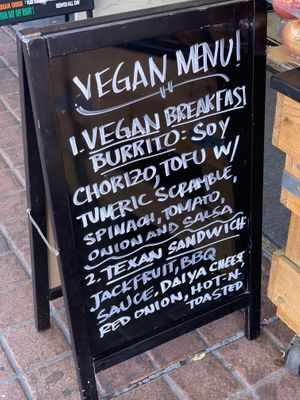 SERVED ALL DAY
VEGAN MENU!
1. VEGAN BREAKFAST
BURRITO: SOY
CHORIZO, TOFU W/
TUMERIC SCRAMBLE,
SPINACH, TOMATO,
ONION AND SALSA
2. TEXAN SANDWICH:
JACKFRUIT, BBQ
SAUCE, DAIYA CHEESE
RED ONION, HOT-N-
TOASTED